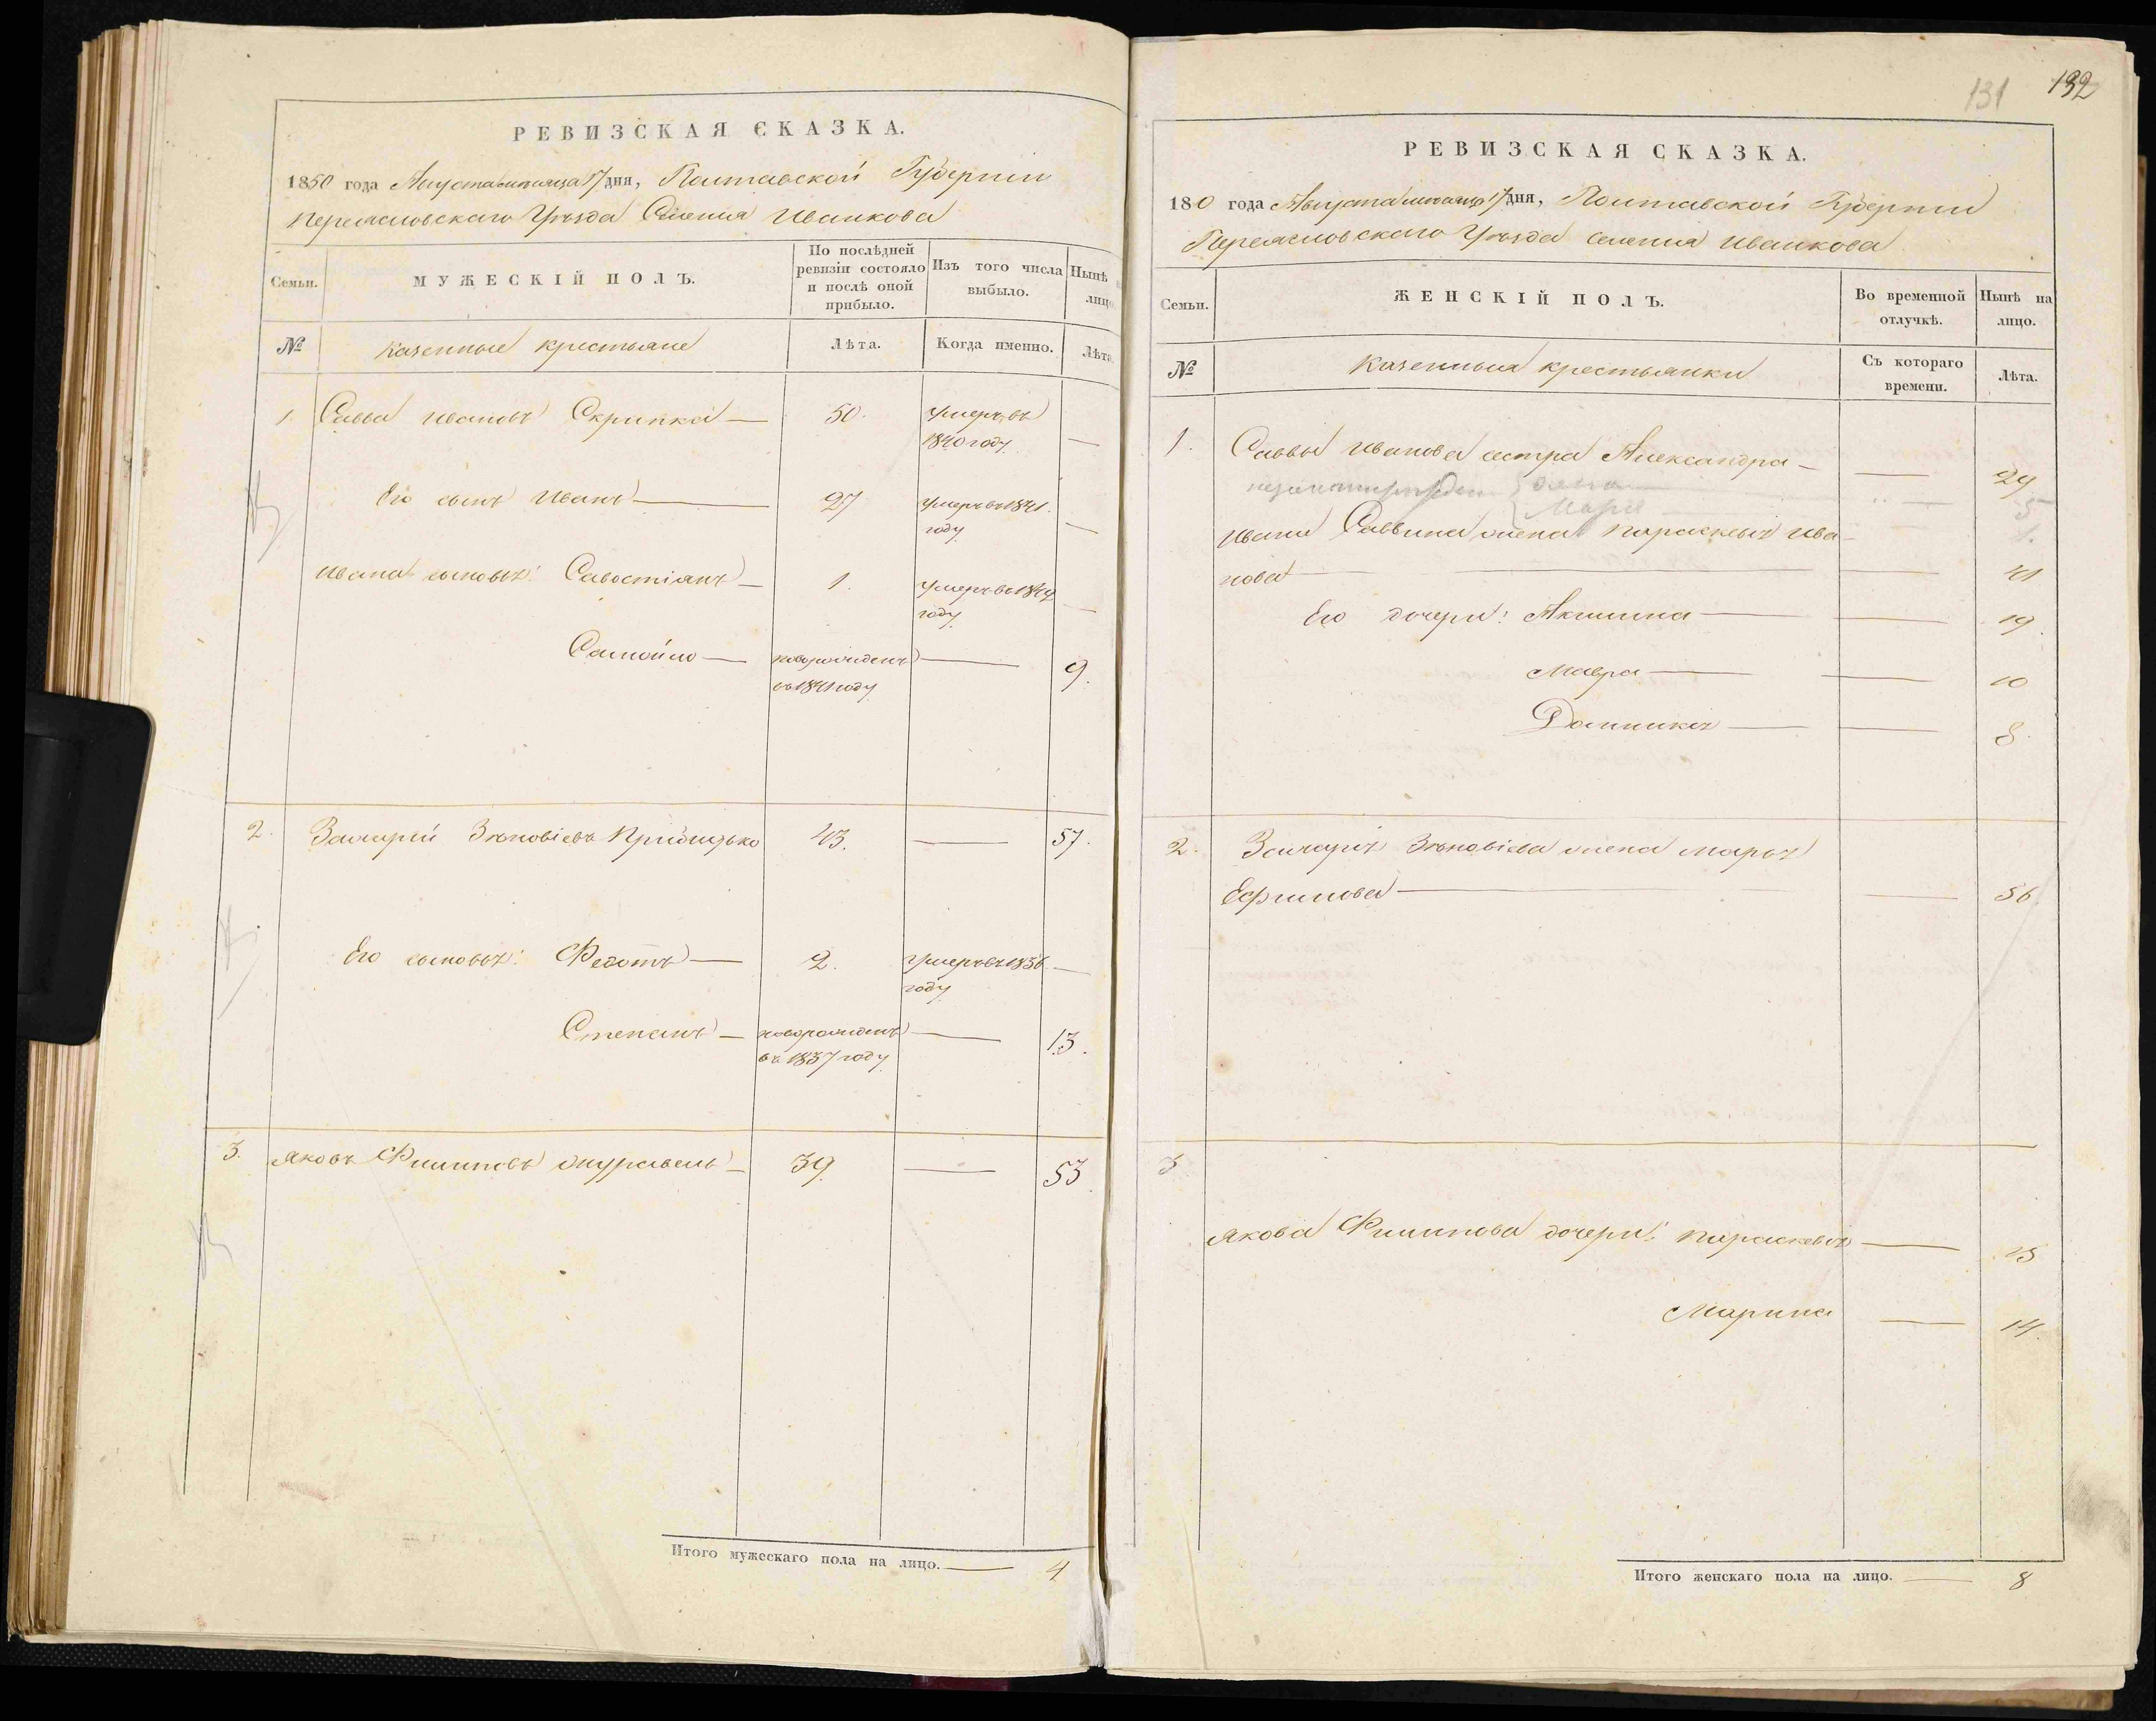 РЕВИЗСКАЯ СКАЗКА.
1850 года Августа месяца 17 дня, Полтавской Губернии
Переясловскаго Уѣзда Селенія Иванкова
Семьи.
МУЖЕСКІЙ ПОЛЪ.
По послѣдней ревизіи состояло и послѣ оной прибыло.
Изъ того числа выбыло.
Нынѣ на лицо
№
Казенные крестьяне
Лѣта.
Когда именно.
Лѣта
1. Савва Ивановъ Скрипка — 50. умеръ въ 1840 году —
Его сынъ Иванъ — 27 умеръ въ 1841. году —
Ивана сыновья: Савостіянъ — 1. умеръ въ 1842 году —
Самойло — новорожденъ въ 1841 году — 9.
2. Захарій Зѣновіевъ Придидько 43. — 57.
Его сыновья: Федотъ — 2. умеръ въ 1836 году —
Степанъ — новорожденъ въ 1837 году — 13.
3. Яковъ Филиповъ Журавель — 39. — 53
Итого мужескаго пола на лицо. — 4
131 132
РЕВИЗСКАЯ СКАЗКА.
180 года Августа месяца 17 дня, Полтавской Губернии
Переясловскаго Уѣзда селенія Иванкова
Семьи.
ЖЕНСКІЙ ПОЛЪ.
Во временной отлучкѣ.
Нынѣ на лицо.
№
Казенныя крестьянки
Съ котораго времени.
Лѣта.
1. Саввы Иванова сестра Александра — — 29
Марія
Ивана Саввина жена Параскевія Ива-
нова — — 41
Его дочери: Акилина — — 19.
Мавра — — 10
Домникія — — 8.
2. Захарія Зѣновіева жена Марья
Ефимова — — 56
3
Якова Филипова дочери: Параскевія — 15
Марина — 14.
Итого женскаго пола на лицо. — 8